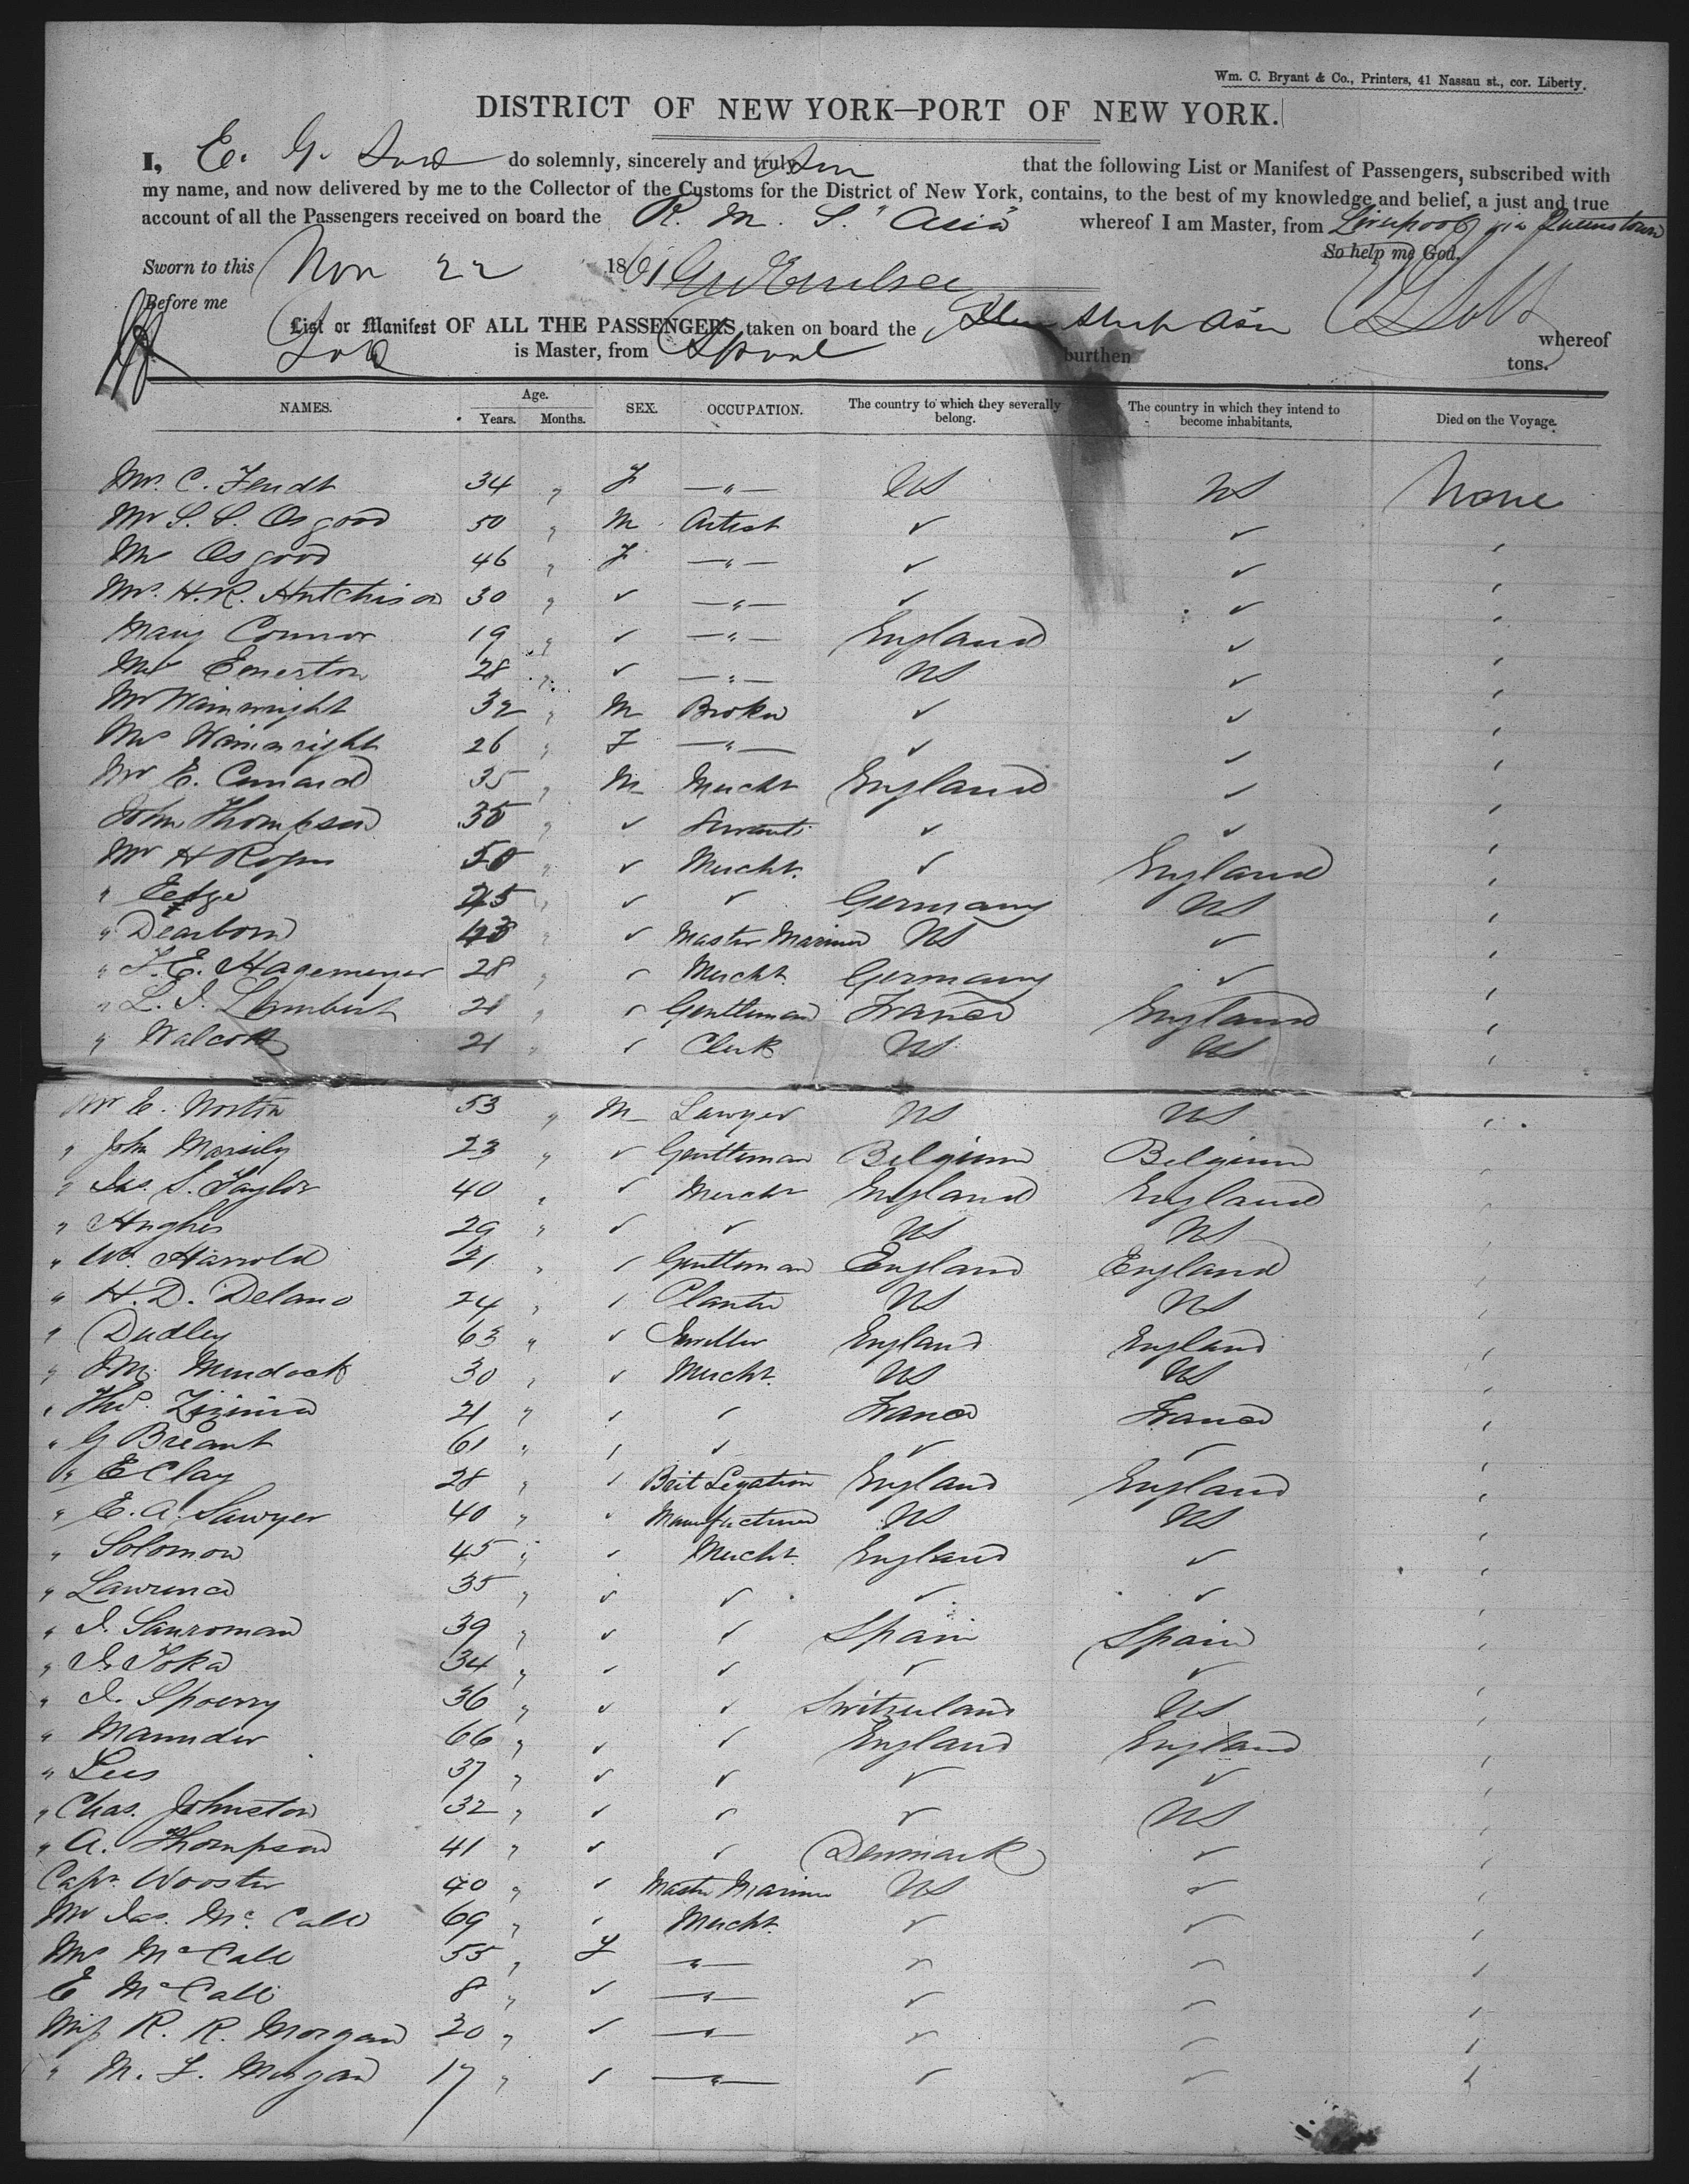 Wm. C. Bryant & Co., Printers, 41 Nassau st., cor. Liberty.
DISTRICT OF NEW YORK—PORT OF NEW YORK.
I, E. G. Lott do solemnly, sincerely and truly that the following List or Manifest of Passengers, subscribed with
my name, and now delivered by me to the Collector of the Customs for the District of New York, contains, to the best of my knowledge and belief, a just and true
account of all the Passengers received on board the R. M. S. "Asia" whereof I am Master, from Liverpool via Queenstown
So help me God.
Sworn to this Nov 22 1861
Before me
List or Manifest OF ALL THE PASSENGERS taken on board the Steam Ship Asia whereof
Lott is Master, from Lpool burthen tons.
NAMES. Age. Years. Months. SEX. OCCUPATION. The country to which they severally belong. The country in which they intend to become inhabitants. Died on the Voyage.
Mrs. C. Fendt 34 " F —"— US US None
Mr S. S. Osgood 50 " M Artist ✓ ✓ '
Mrs Osgood 46 " F —"— ✓ ✓ '
Mrs. H. R. Hutchison 30 " ✓ —"— ✓ ✓ '
Mary Connor 19 " ✓ —"— England ✓ '
Mrs Emerton 28 " ✓ —"— US ✓ '
Mr Wainwright 32 " M Broker ✓ ✓ '
Mrs Wainwright 26 " F —"— ✓ ✓ '
Mr E. Cunard 35 " M Mercht England ✓ '
John Thompson 35 " ✓ Servant ✓ ✓ '
Mr H Rogers 50 " ✓ Mercht. ✓ England '
" 45 " ✓ ✓ Germany US '
" Dearborn 43 " ✓ Master Mariner US ✓ '
" F. E. Hagemeyer 28 " ✓ Mercht. Germany ✓ '
" L. J. Lambert 21 " ✓ Gentleman France England '
" Walcott 21 " ✓ Clerk US US '
Mr E. Norton 53 " M Lawyer US US '
" John Marsily 23 " ✓ Gentleman Belgium Belgium '
" Jas. S. Taylor 40 " ✓ Mercht England England '
" Hughes 29 " ✓ ✓ US US '
" Wm. Harrold 21 " ✓ Gentleman England England '
" H. D. Delano 24 " ✓ Planter US US '
" Dudley 63 " ✓ Jeweller England England '
" Murdock 30 " ✓ Mercht. US US '
" Thos. Zizinia 21 " ✓ ✓ France France '
" G Breant 61 " ✓ ✓ ✓ ✓ '
" E Clay 28 " ✓ Brit Legation England England '
" E. A. Sawyer 40 " ✓ Manufacturer US US '
" Solomon 45 " ✓ Mercht. England ✓ '
" Lawrence 35 " ✓ ✓ ✓ ✓ '
" J. Sanroman 39 " ✓ ✓ Spain Spain '
" J. Toka 34 " ✓ ✓ ✓ ✓ '
" J. Spoerry 36 " ✓ ✓ Switzerland US '
" Maunder 66 " ✓ ✓ England England '
" Lees 37 " ✓ ✓ ✓ ✓ '
" Chas. Johnston 32 " ✓ ✓ ✓ US '
" A. Thompson 41 " ✓ ✓ Denmark ✓ '
Capt. Wooster 40 " ✓ Master Mariner US ✓ '
Mr Jas. McCall 69 " ✓ Mercht. ✓ ✓ '
Mrs McCall 55 " F —"— ✓ ✓ '
E McCall 8 " ✓ —"— ✓ ✓ '
Miss R. R. Morgan 20 " ✓ —"— ✓ ✓ '
" M. F. Morgan 17 " ✓ —"— ✓ ✓ '